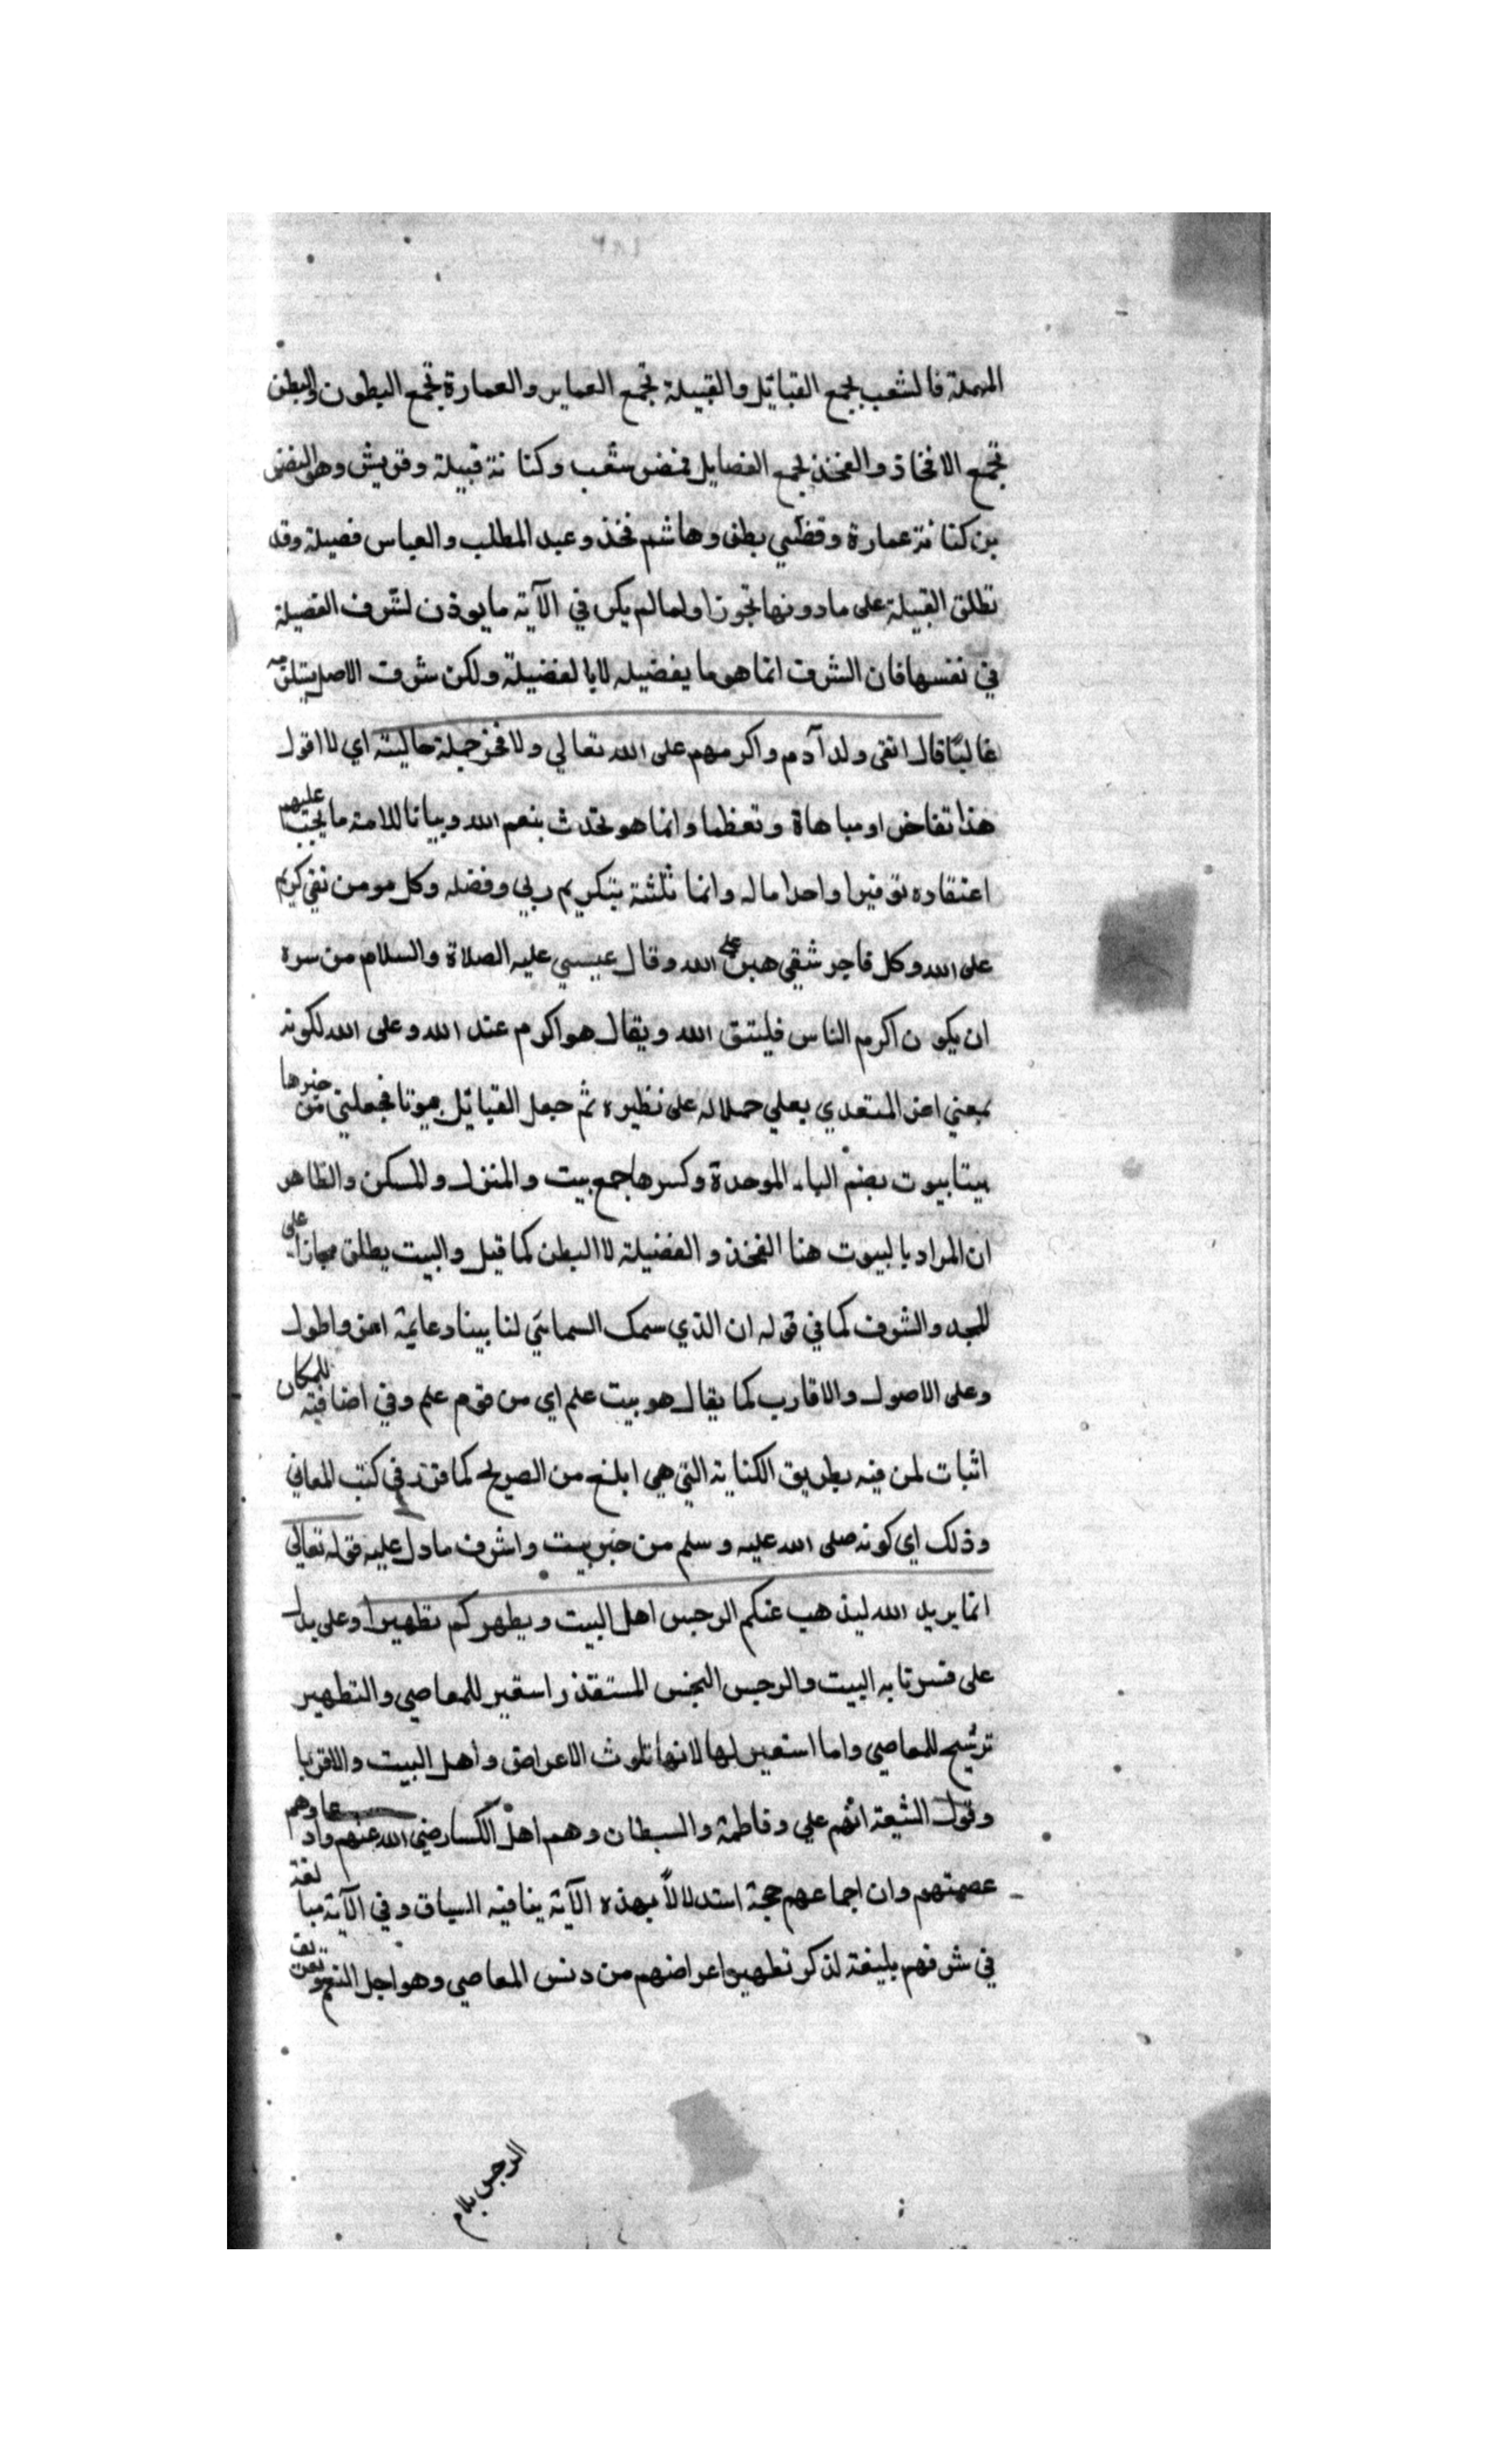 المهملة فالشعب يجمع القبائل والقبيلة تجمع العماير والعمارة تجمع البطون والبطن
تجمع الافخاذ والفخذ يجمع الفصايل فمضر شعب وكنانة قبيلة وقريش وهو النضر
بن كنانة عمارة وقصّي بطن وهاشم فخذ وعبد المطلب والعباس فصيلة وقد
تطلق القبيلة على ما دونها تجوزا ولما لم يكن في الآية ما يوذن لشرف الفصيلة
في نفسها فان الشرف انما هو ما يفضيله لا بالفضيلة ولكن شرف الاصل يستلزمه
غالبًا قال اتقى ولد آدم واكرمهم على الله تعالي ولا فخر جملة حاليته اي لا اقول
هذا تفاخرا ومباهاة وتعظما وانما هو تحدث بنعم الله وبيانا للامة ما يجب عليهم
اعتقاده توقيرا واحدا ماله وانما ثلثته بتكريم ربي وفضله وكل مومن تقي كريم
على الله وكل فاجر شقي هين على الله وقال عيسي عليه الصلاة والسلام من سره
ان يكون اكرم الناس فليتق الله ويقال هو اكرم عند الله وعلى الله لكونه
بمعني اعز المتعدي بعلي حملا له على نظيره ثم جعل القبائل بيوتا فجعلني من خيرها
بيتا بيوت بضم الباء الموحدة وكسرها جمع بيت والمنزل والمسكن والظاهر
ان المراد بالبيوت هنا الفخذ و الفضيلة لا البطن كما قيل والبيت يطلق مجازا على
المجد والشرف كما في قوله ان الذي سمك السما بني لنا بيتا دعايمه اعز واطول
وعلى الاصول والاقارب كما يقال هو بيت علم اي من قوم علم وفي اضافته للمكان
اثبات لمن فيه بطريق الكناية التي هي ابلغ من الصريح كما قرر في كتب المعاني
وذلك اي كونه صلى الله عليه وسلم من خير بيت واشرف ما دل عليه قوله تعالى
انما يريد الله ليذهب عنكم الرجس اهل البيت ويطهركم تطهيرا وعلى يدل
على قرابه البيت والرجس النجس المستقذر استعير للمعاصي والتطهير
ترشيح للمعاصي واما استعير لها لانها تلوث الاعراض واهل البيت والاقربا
وقول الشيعة انهم علي وفاطمة والسبطان وهم اهل الكسا رضي الله عنهم وادعاوهم
عصمتهم وان اجماعهم حجة استدلالاً بهذه الآية ينافيه السياق وفي الآية مبالغة
في شرفهم بليغة لذكر تطهير اعراضهم من دنس المعاصي وهو اجل النعم وتعريف
الرجس بلام